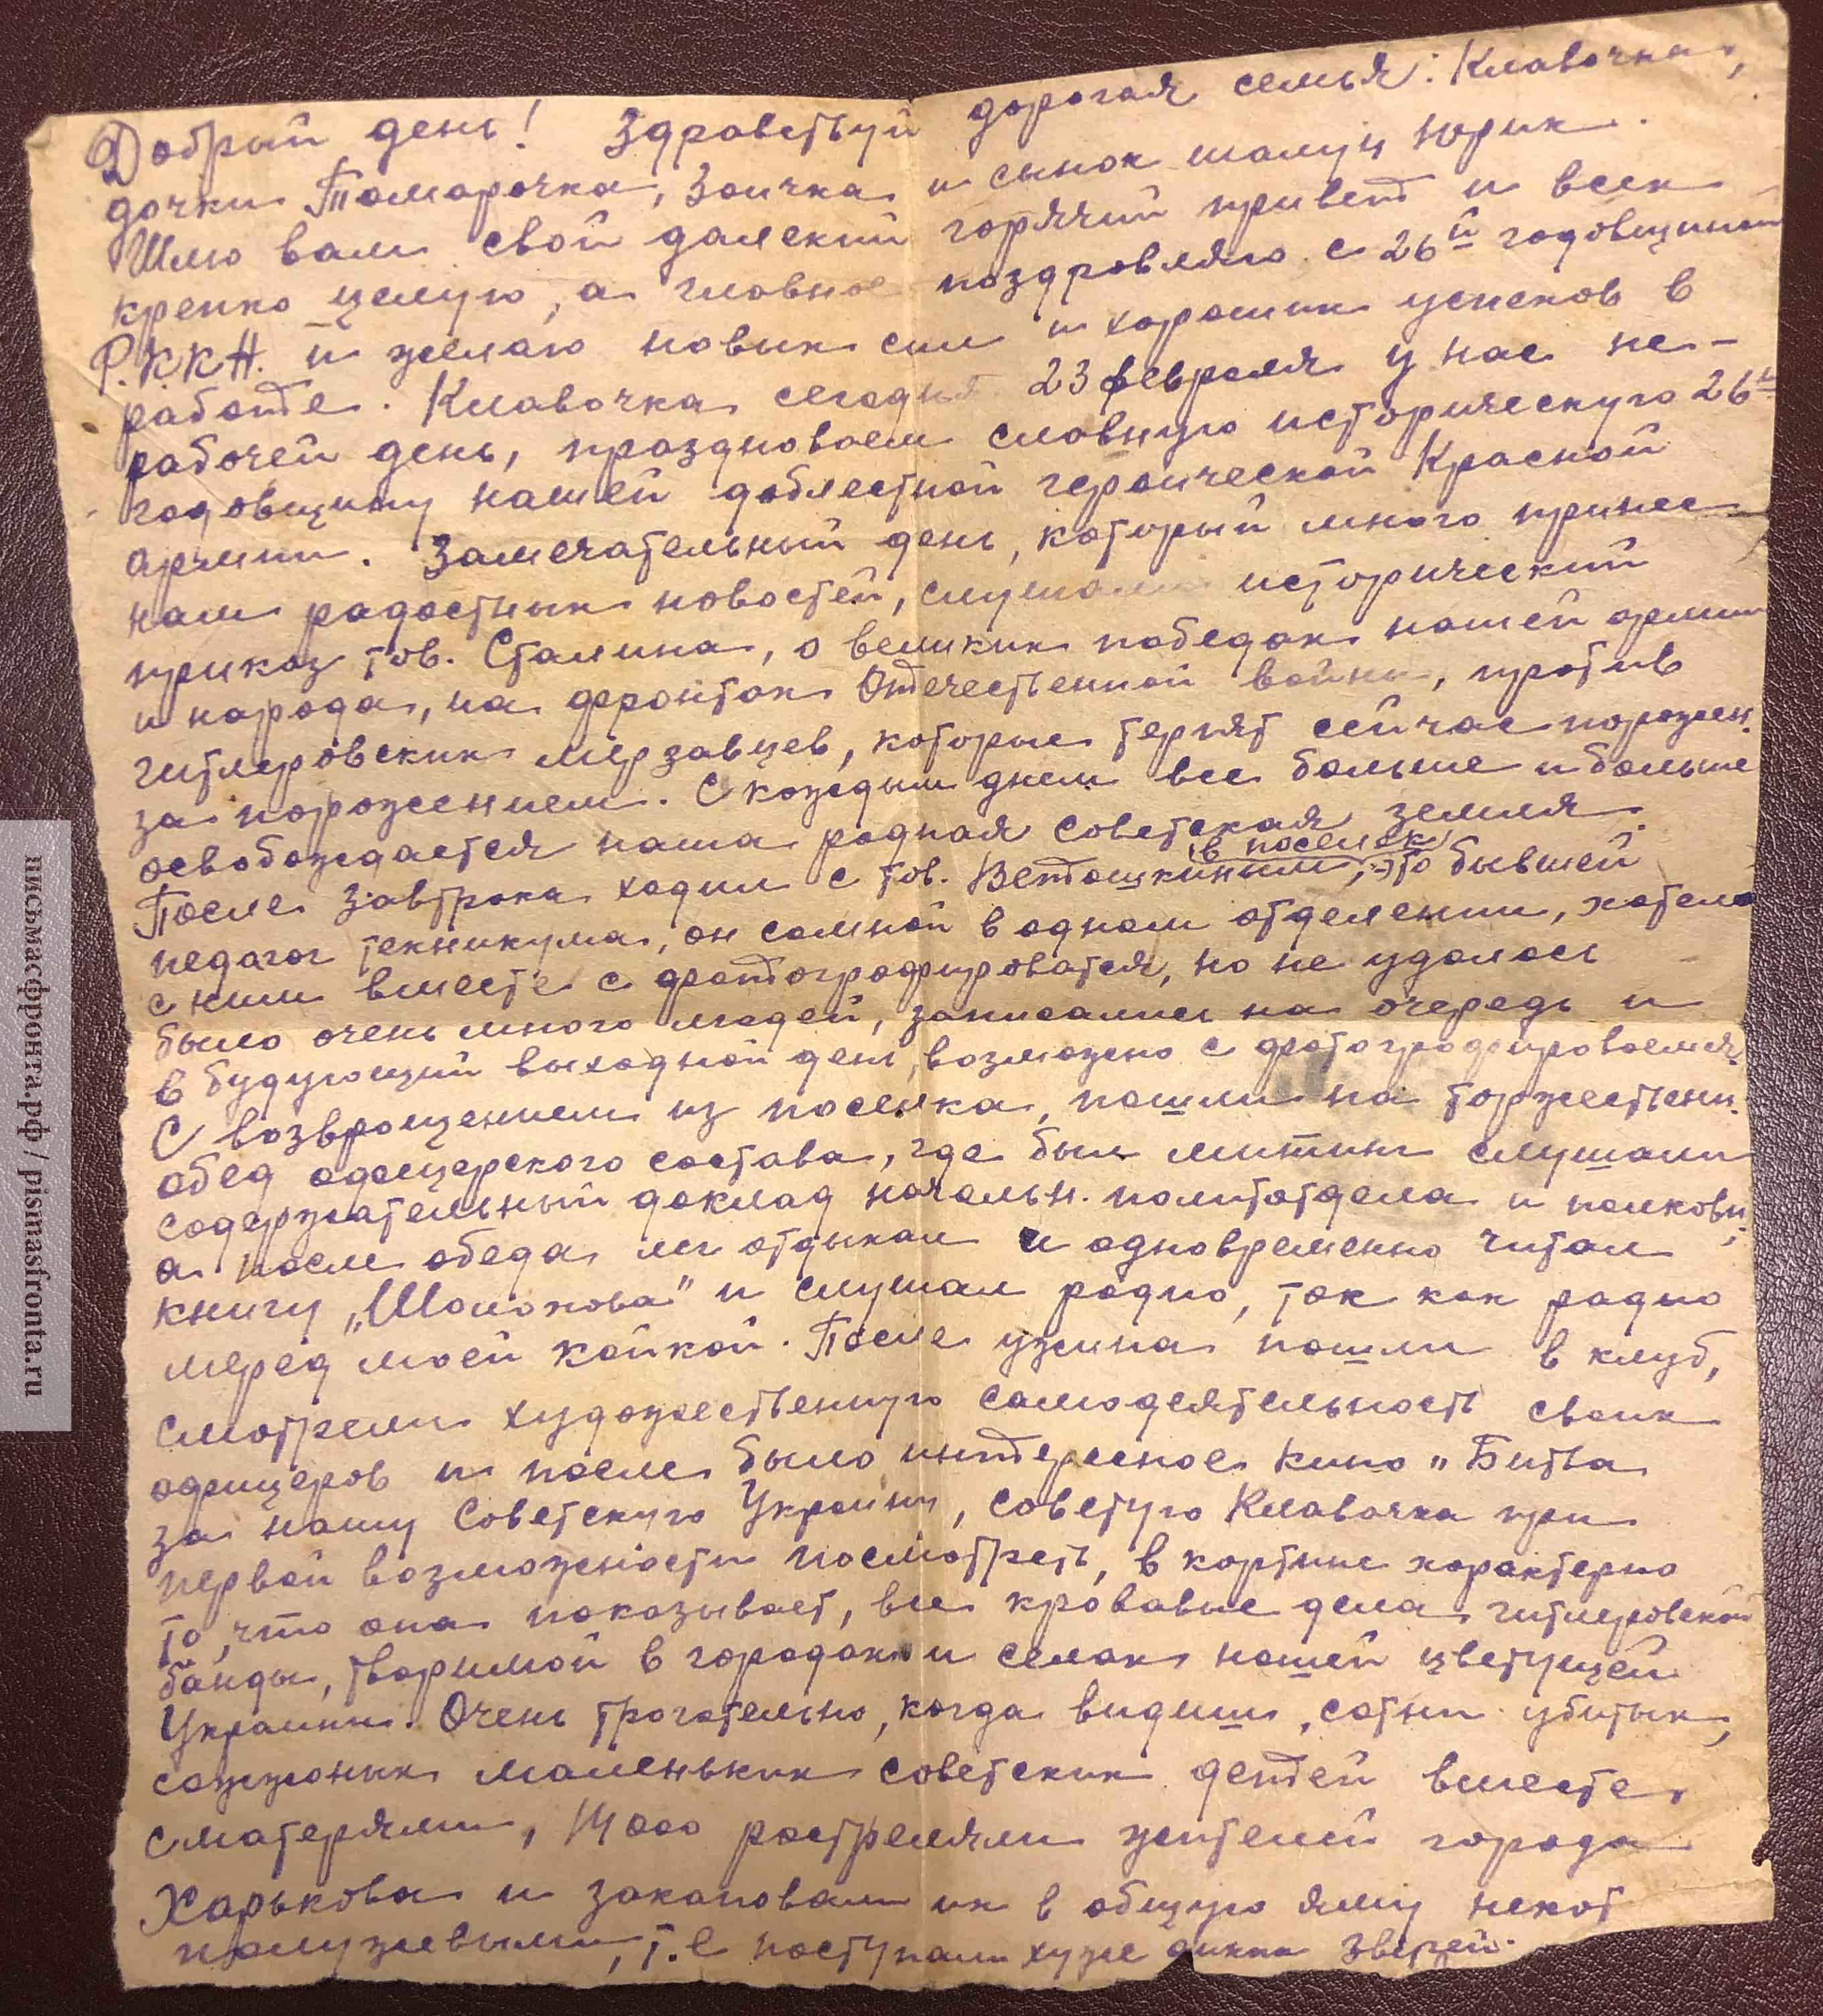 Добрый день! Здравствуй дорогая семья: Клавочка,
дочки Тамарочка, Зоичка и сынок шалун Юрик.
Шлю вам свой далекий горячий привет и всех
крепко целую, а главное поздровляю с 26й годовщиной
Р.К.К.А. и желаю новых сил и хороших успехов в
работе. Клавочка сегодня 23 февраля у нас не-
рабочей день, праздноваем славную историческую 26ю
годовщину нашей доблестной героической Красной
армии. Замечательный день, который много принес
нам радостных новостей, слушали исторический
приказ тов. Сталина, о великих победах нашей армии
и народа, на фронтах Отечественной войны, против
гитлеровских мерзавцев, которые терпят сейчас поражен.
за поражением. С каждым днем все больше и больше
освобождается наша родная советская земля.
в поселок
После завтрака ходил с тов. Ветошкиным, это бывшей
педагог техникума, он самной в одном отделении, хотели
с ним вместе с фотографироватся, но не удалось
было очень много людей, записались на очередь и
в будующий выходной день, возможно с фотографироваемся.
С возвращением из поселка, пошли на торжественн.
обед офицерского состава, где был митинг слушали
содержательный доклад начальн. политотдела и полковн.,
а после обеда лег отдыхал и одновременно читал
книгу „Шолохова" и слушал радио, так как радио
перед моей койкой. После ужина пошли в клуб,
смотрели художественную самодеятельность своих
офицеров и после было интересное кино „Битва
за нашу Советскую Украину, советую Клавочка при
первой возможности посмотреть, в картине характерно
то, что она показывает, все кровавые дела гитлеровской
банды, творимой в городах и селах нашей цветущей
Украины. Очень трогательно, когда видиш, сотни убитых,
сожжоных маленьких советских детей вместе
сматерями, 14000 растреляли жителей города
Харькова и закаповали их в общую яму некот
полуживыми, т.е поступали хуже диких зверей.
письмасфронта.рф / pismasfronta.ru